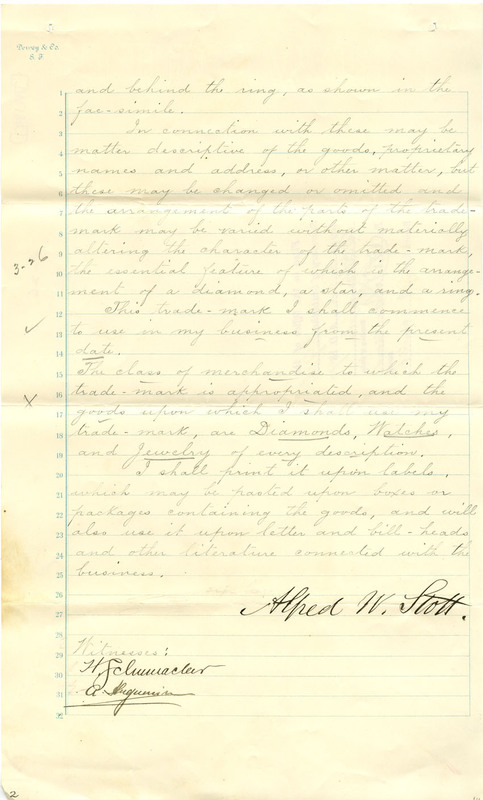 Dewey & Co.
S. F.
1 and behind the ring, as shown in the
2 fac-simile.
3 In connection with these may be
4 matter descriptive of the goods, proprietary
5 names and address, or other matter, but
6 these may be changed or omitted and
7 the arrangement of the parts of the trade-
8 mark may be varied without materially
9 altering the character of the trade-mark,
3-26
10 the essential feature of which is the arrange-
11 ment of a diamond, a star, and a ring.
12 This trade-mark I shall commence
13 to use in my business from the present
14 date.
15 The class of merchandise to which the
16 trade-mark is appropriated, and the
X
17 goods upon which I shall use my
18 trade-mark, are Diamonds, Watches,
19 and Jewelry of every description.
20 I shall print it upon labels,
21 which may be pasted upon boxes or
22 packages containing the goods, and will
23 also use it upon letter and bill-heads
24 and other literature connected with the
25 business.
26
27 Alfred W. Stott.
28
29 Witnesses:
30 W. Schumacher
31 A.
32
2